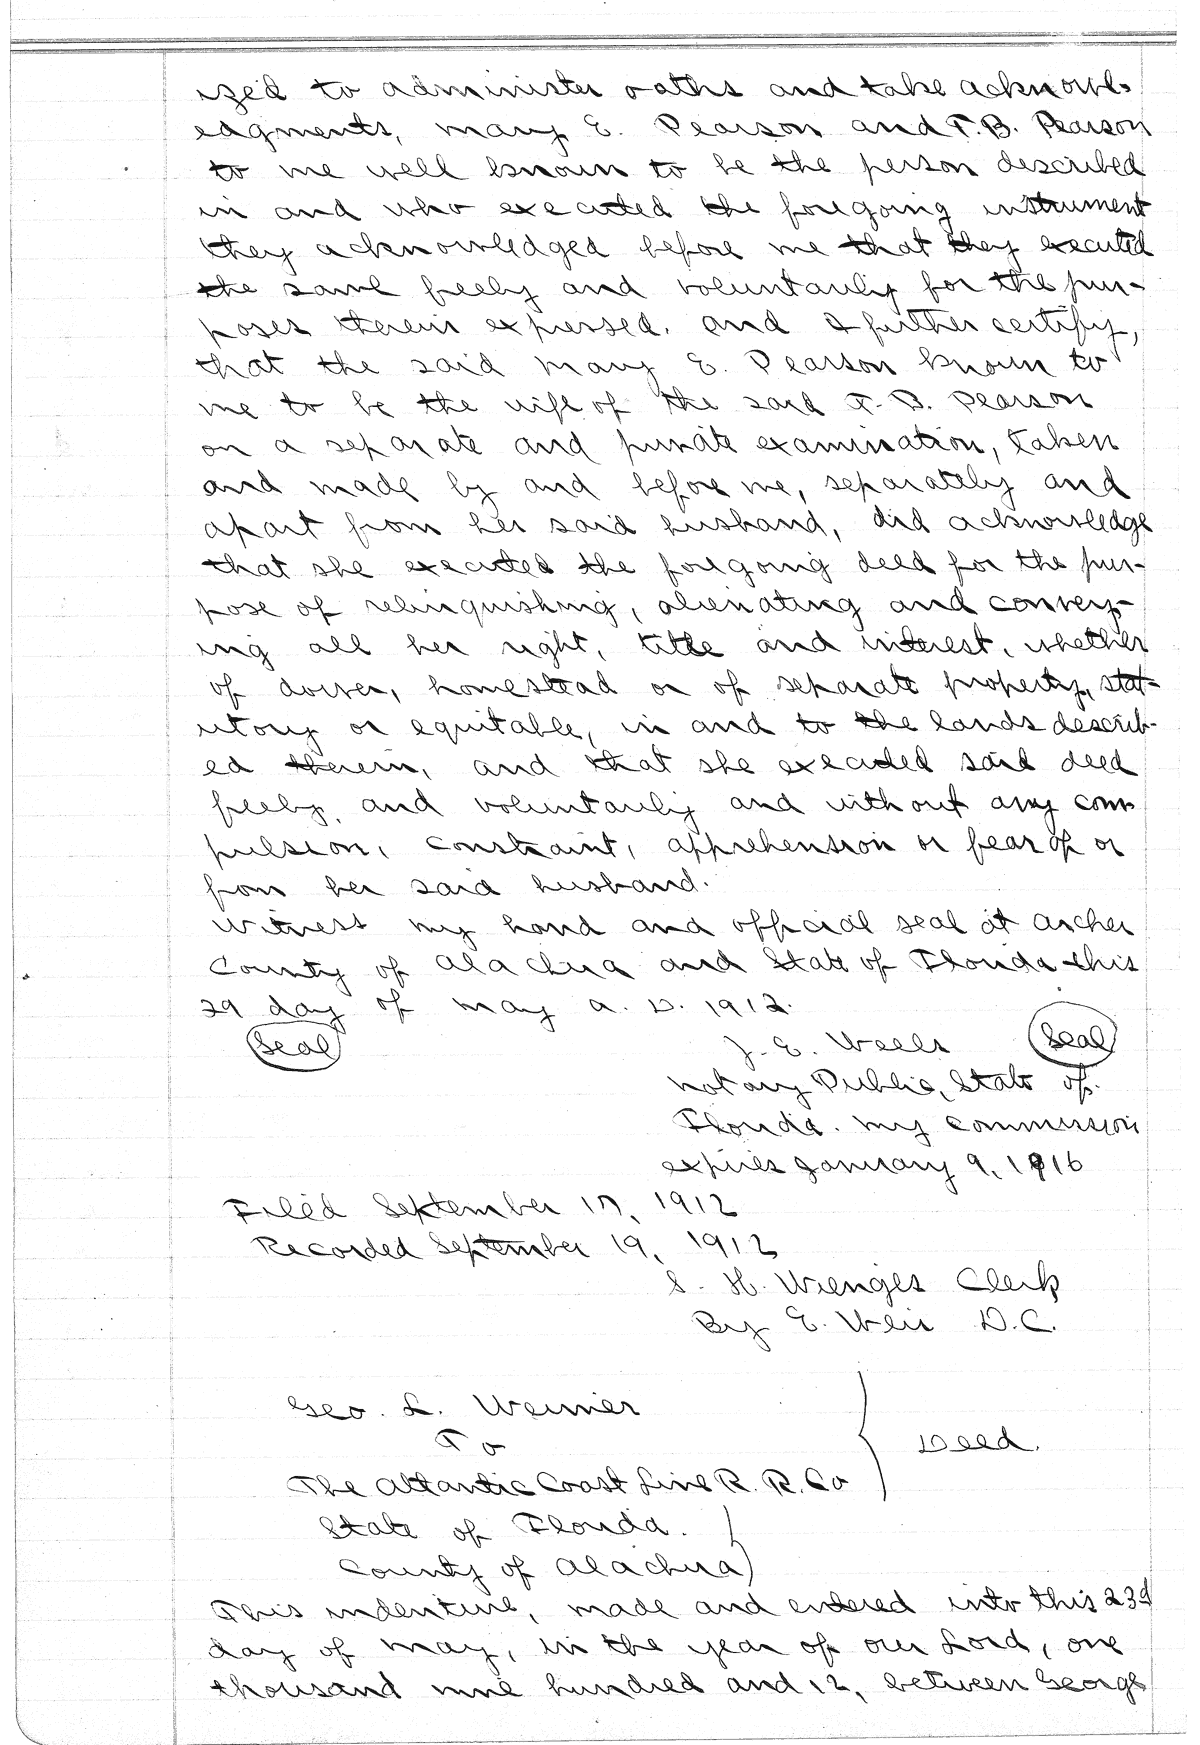 ized to administer oaths and take acknowl-
edgments, Mary E. Pearson and T. B. Pearson
to me well known to be the person described
in and who executed the foregoing instrument
they acknowledged before me that they executed
the same freely and voluntarily for the pur-
poses therein expressed. and I further certify,
that the said Mary E. Pearson known to
me to be the wife of the said T. B. Pearson
on a separate and private examination, taken
and made by and before me, separately and
apart from her said husband, did acknowledge
that she executed the foregoing deed for the pur-
pose of relinquishing, alienating and convey-
ing all her right, title and interest, whether
of dower, homestead or of separate property, stat-
utory or equitable, in and to the lands describ-
ed therein, and that she executed said deed
freely, and voluntarily and without any com-
pulsion, constraint, apprehension or fear of or
from her said husband.
Witness my hand and official seal at Archer
County of Alachua and State of Florida this
29 day of May A. D. 1912.
Seal J. E. Wells Seal
Notary Public, State of
Florida. My commission
expires January 9, 1916
Filed September 17, 1912
Recorded September 19, 1912
S. H. Wienges Clerk
By E. Weir D.C.
Geo. L. Weimer
To
Deed.
The Atlantic Coast Line R. R. Co
State of Florida.
County of Alachua
This indenture, made and entered into this 23d
day of May, in the year of our Lord, one
thousand nine hundred and 12, between George